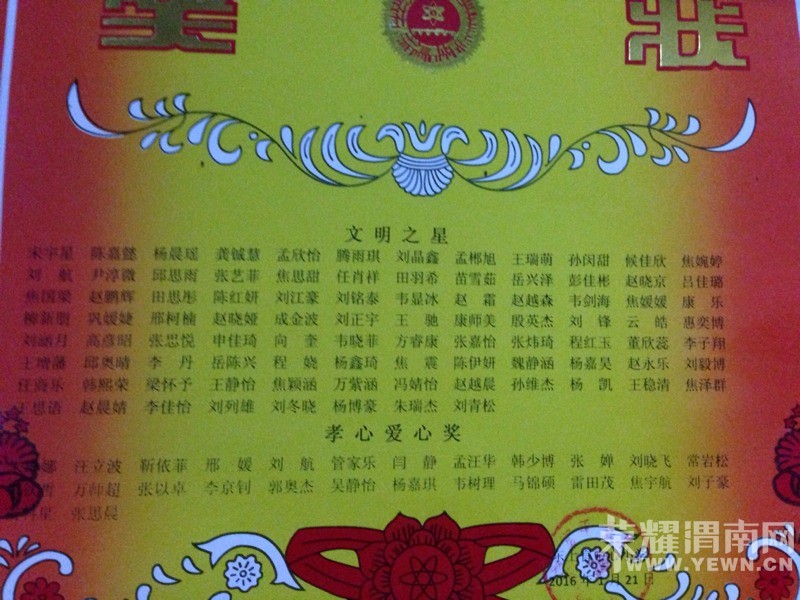 奖 状
文明之星
宋宇星 陈嘉懿 杨晨瑶 龚铖慧 孟欣怡 腾雨琪 刘晶鑫 孟郴旭 王瑞萌 孙闵甜 候佳欣 焦婉婷
刘航 尹淳微 邱思雨 张艺菲 焦思甜 任肖祥 田羽希 苗雪茹 岳兴泽 彭佳彬 赵晓京 吕佳璐
焦国梁 赵鹏辉 田思彤 陈红妍 刘江豪 刘铭泰 韦显冰 赵霜 赵越森 韦剑海 焦媛媛 康乐
柳新朋 巩媛婕 邢柯楠 赵晓娅 成金波 刘正宇 王驰 康师美 殷英杰 刘锋 云皓 惠奕博
刘涵月 高彦昭 张思悦 申佳琦 向奎 韦晓菲 方睿康 张嘉怡 张炜琦 程红玉 董欣蕊 李子翔
王增藩 邱奥晴 李丹 岳陈兴 程娆 杨鑫琦 焦震 陈伊妍 魏静涵 杨嘉昊 赵永乐 刘毅博
汪商乐 韩熙荣 梁怀予 王静怡 焦颖涵 万紫涵 冯婧怡 赵越晨 孙维杰 杨凯 王稳清 焦泽群
王思语 赵晨婧 李佳怡 刘列雄 刘冬晓 杨博豪 朱瑞杰 刘青松
孝心爱心奖
娜 汪立波 靳依菲 邢媛 刘航 管家乐 闫静 孟汪华 韩少博 张婵 刘晓飞 常岩松
万帅超 张以卓 李京钊 郭奥杰 吴静怡 杨嘉琪 韦树理 马锦硕 雷田茂 焦宇航 刘子豪
星 张思晨
2016年1月21日
荣耀渭南网
WWW.YEWN.CN